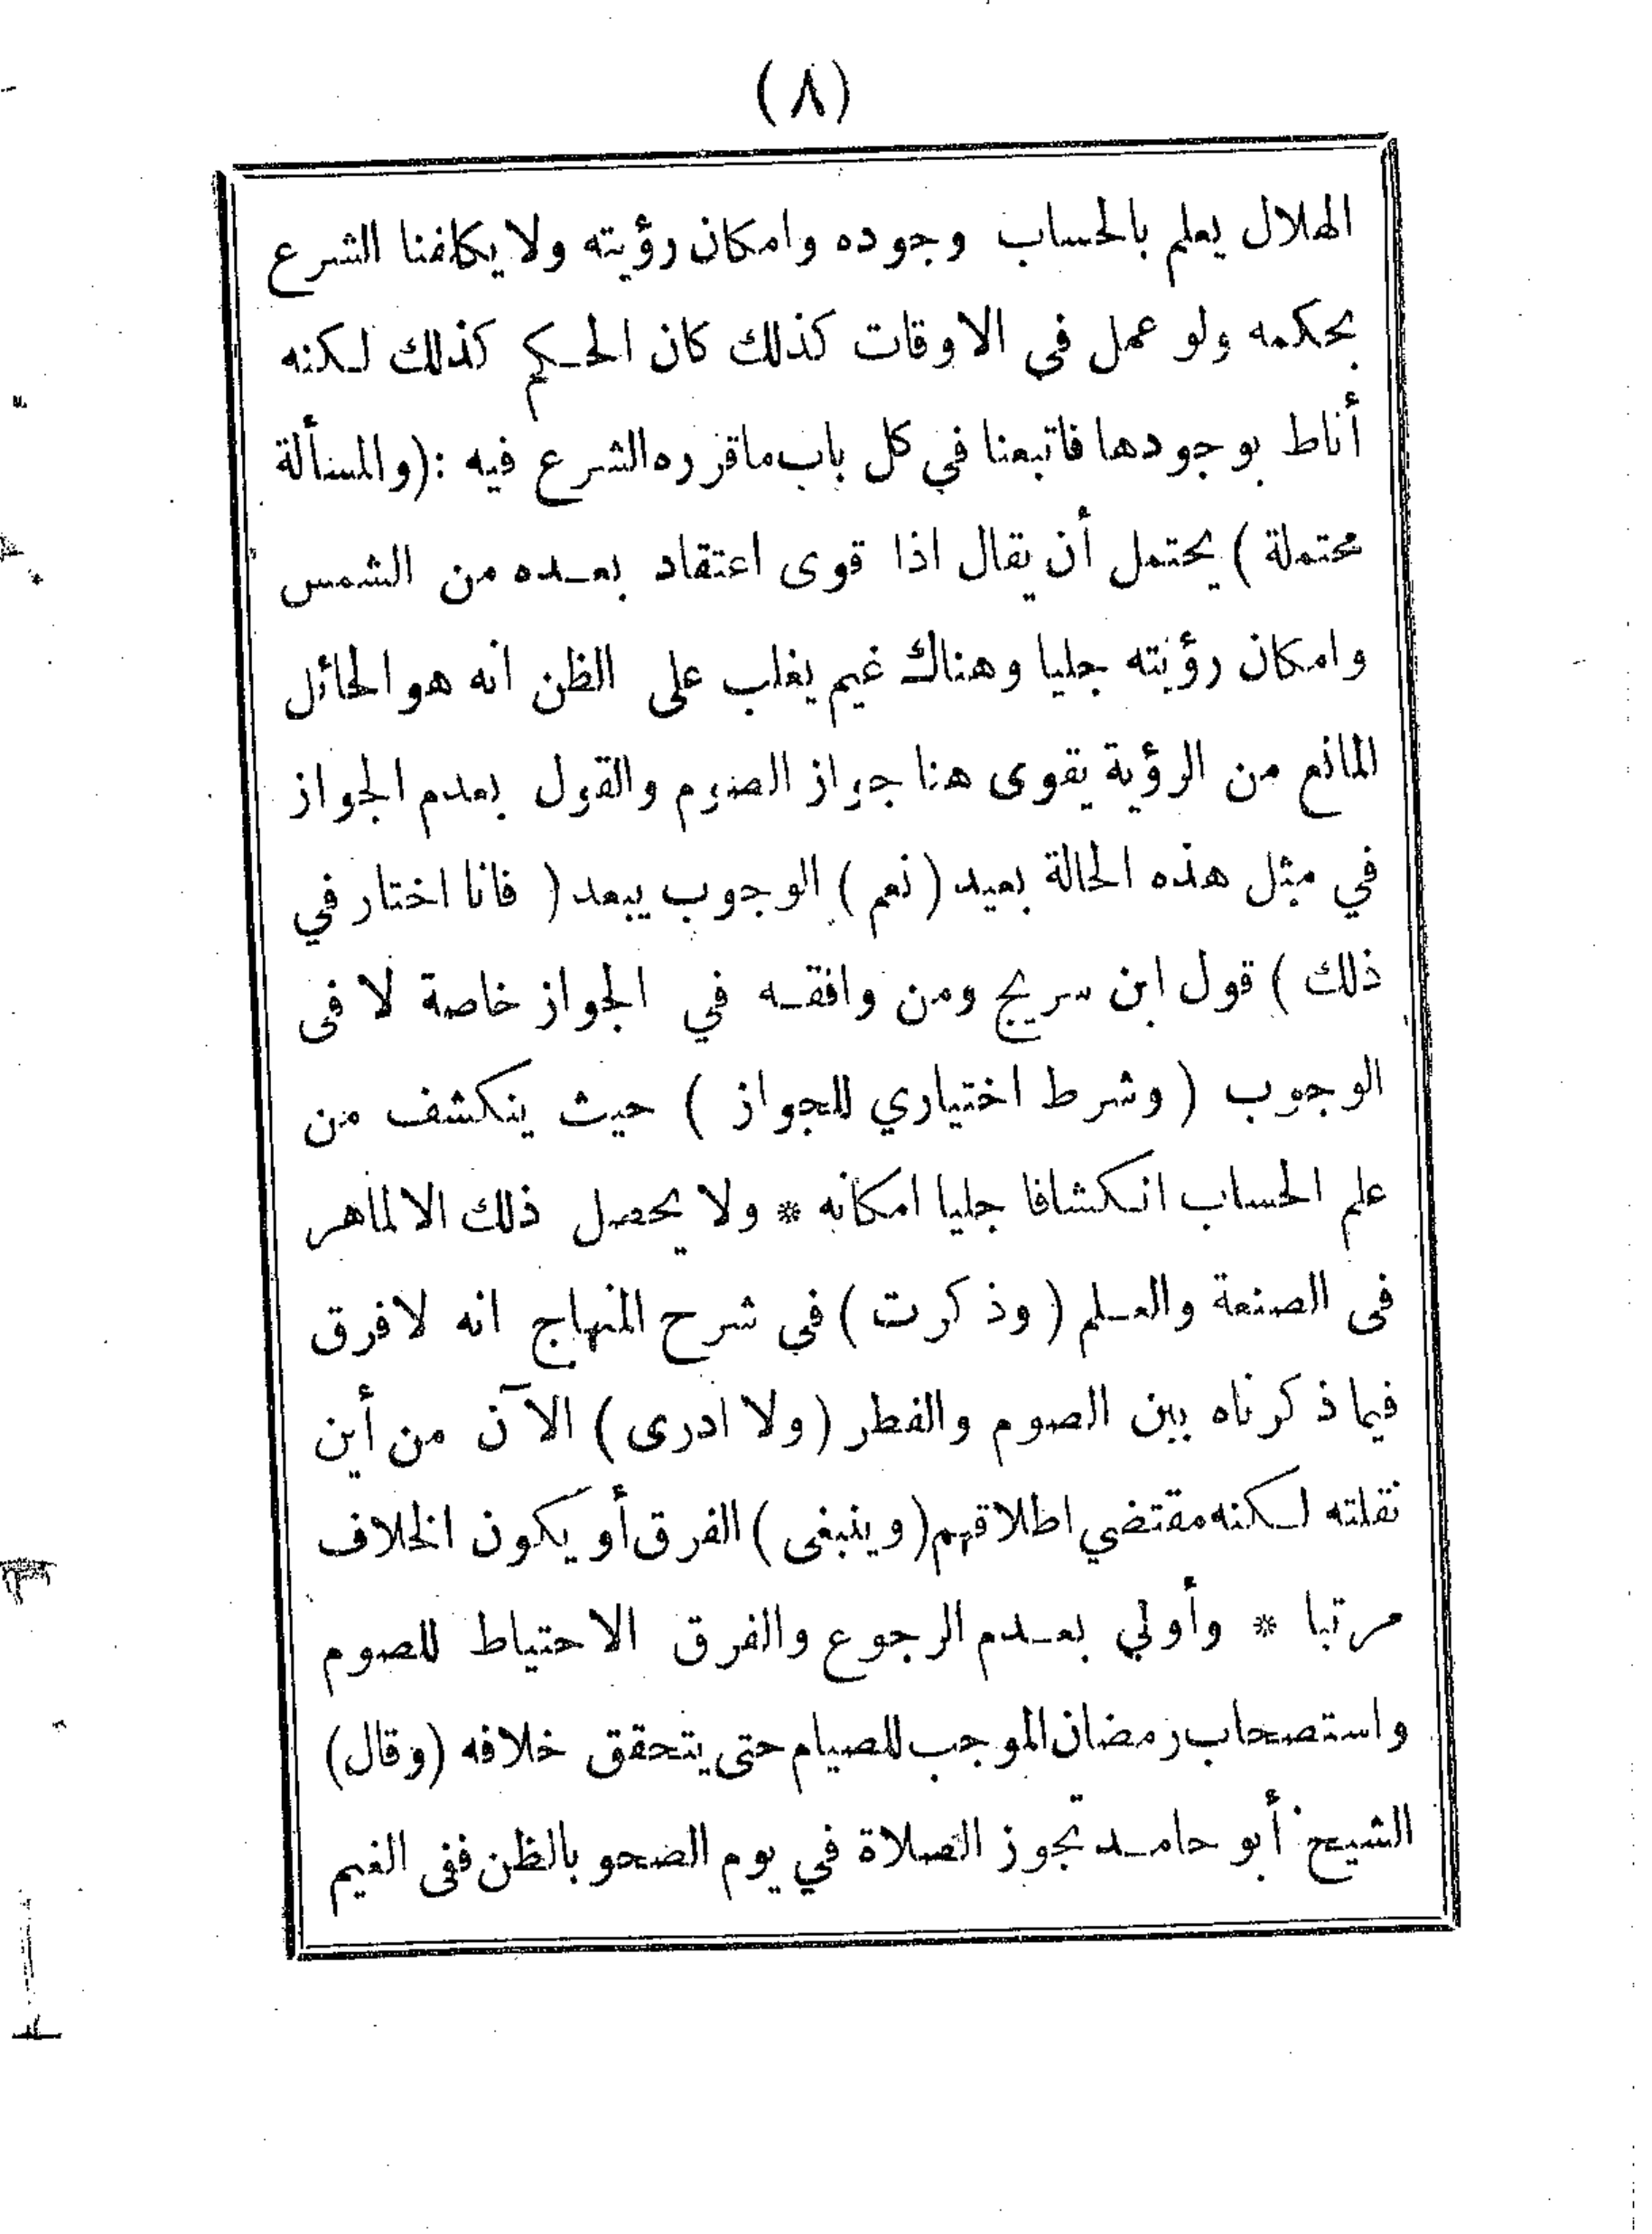 (٨)
الهلال يعلم بالحساب وجوده وامكان رؤيته ولا يكلفنا الشرع
بحكمه ولو عمل في الاوقات كذلك كان الحكم كذلك لكنه
أناط بوجودها فاتبعنا في كل باب ماقرره الشرع فيه : (والمسألة
محتملة) يحتمل أن يقال اذا قوى اعتقاد بعده من الشمس
وامكان رؤيته جليا وهناك غيم يغلب على الظن انه هو الحائل
المانع من الرؤية يقوى هنا جواز الصوم والقول بعدم الجواز
في مثل هذه الحالة بعيد (نعم) الوجوب يبعد (فانا اختار في
ذلك) قول ابن سريج ومن وافقه في الجواز خاصة لا فى
الوجوب (وشرط اختياري للجواز) حيث ينكشف من
علم الحساب انكشافا جليا امكانه * ولا يحصل ذلك الا لماهر
فى الصنعة والعلم (وذكرت) في شرح المنهاج انه لا فرق
فيما ذكرناه بين الصوم والفطر (ولا ادرى) الآن من أين
نقلته لكنه مقتضي اطلاقهم (وينبغى) الفرق أو يكون الخلاف
مرتبا * وأولي بعدم الرجوع والفرق الاحتياط للصوم
واستصحاب رمضان الموجب للصيام حتى يتحقق خلافه (وقال)
الشيخ أبو حامد تجوز الصلاة في يوم الصحو بالظن ففى الغيم